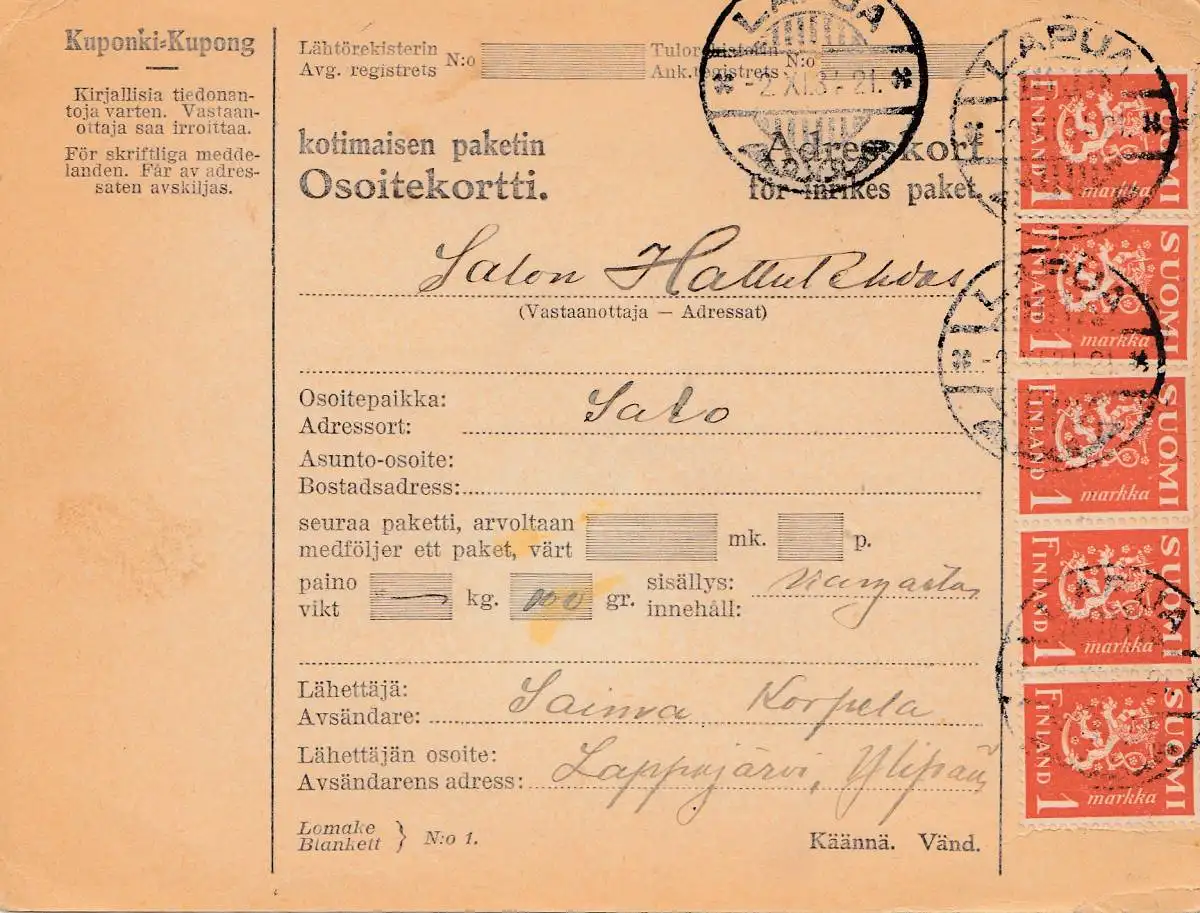 Kuponki-Kupong
Kirjallisia tiedonan-
toja varten. Vastaan-
ottaja saa irroittaa.
För skriftliga medde-
landen. Får av adres-
saten avskiljas.
Lähtörekisterin
Avg. registrets N:o
Tulorekisterin
Ank. registrets N:o
LAPUA
kotimaisen paketin
Osoitekortti.
Adresskort
för inrikes paket.
Salon
(Vastaanottaja — Adressat)
Osoitepaikka:
Adressort: Salo
Asunto-osoite:
Bostadsadress:
seuraa paketti, arvoltaan
medföljer ett paket, värt mk. p.
paino
vikt kg. gr.
sisällys:
innehåll:
Lähettäjä:
Avsändare: Saima Korpela
Lähettäjän osoite:
Avsändarens adress: Lappajärvi,
Lomake
Blankett N:o 1.
Käännä. Vänd.
LAPUA
SUOMI
FINLAND
1 markka
LAPUA
SUOMI
FINLAND
1 markka
SUOMI
FINLAND
1 markka
LAPUA
SUOMI
FINLAND
1 markka
SUOMI
FINLAND
1 markka